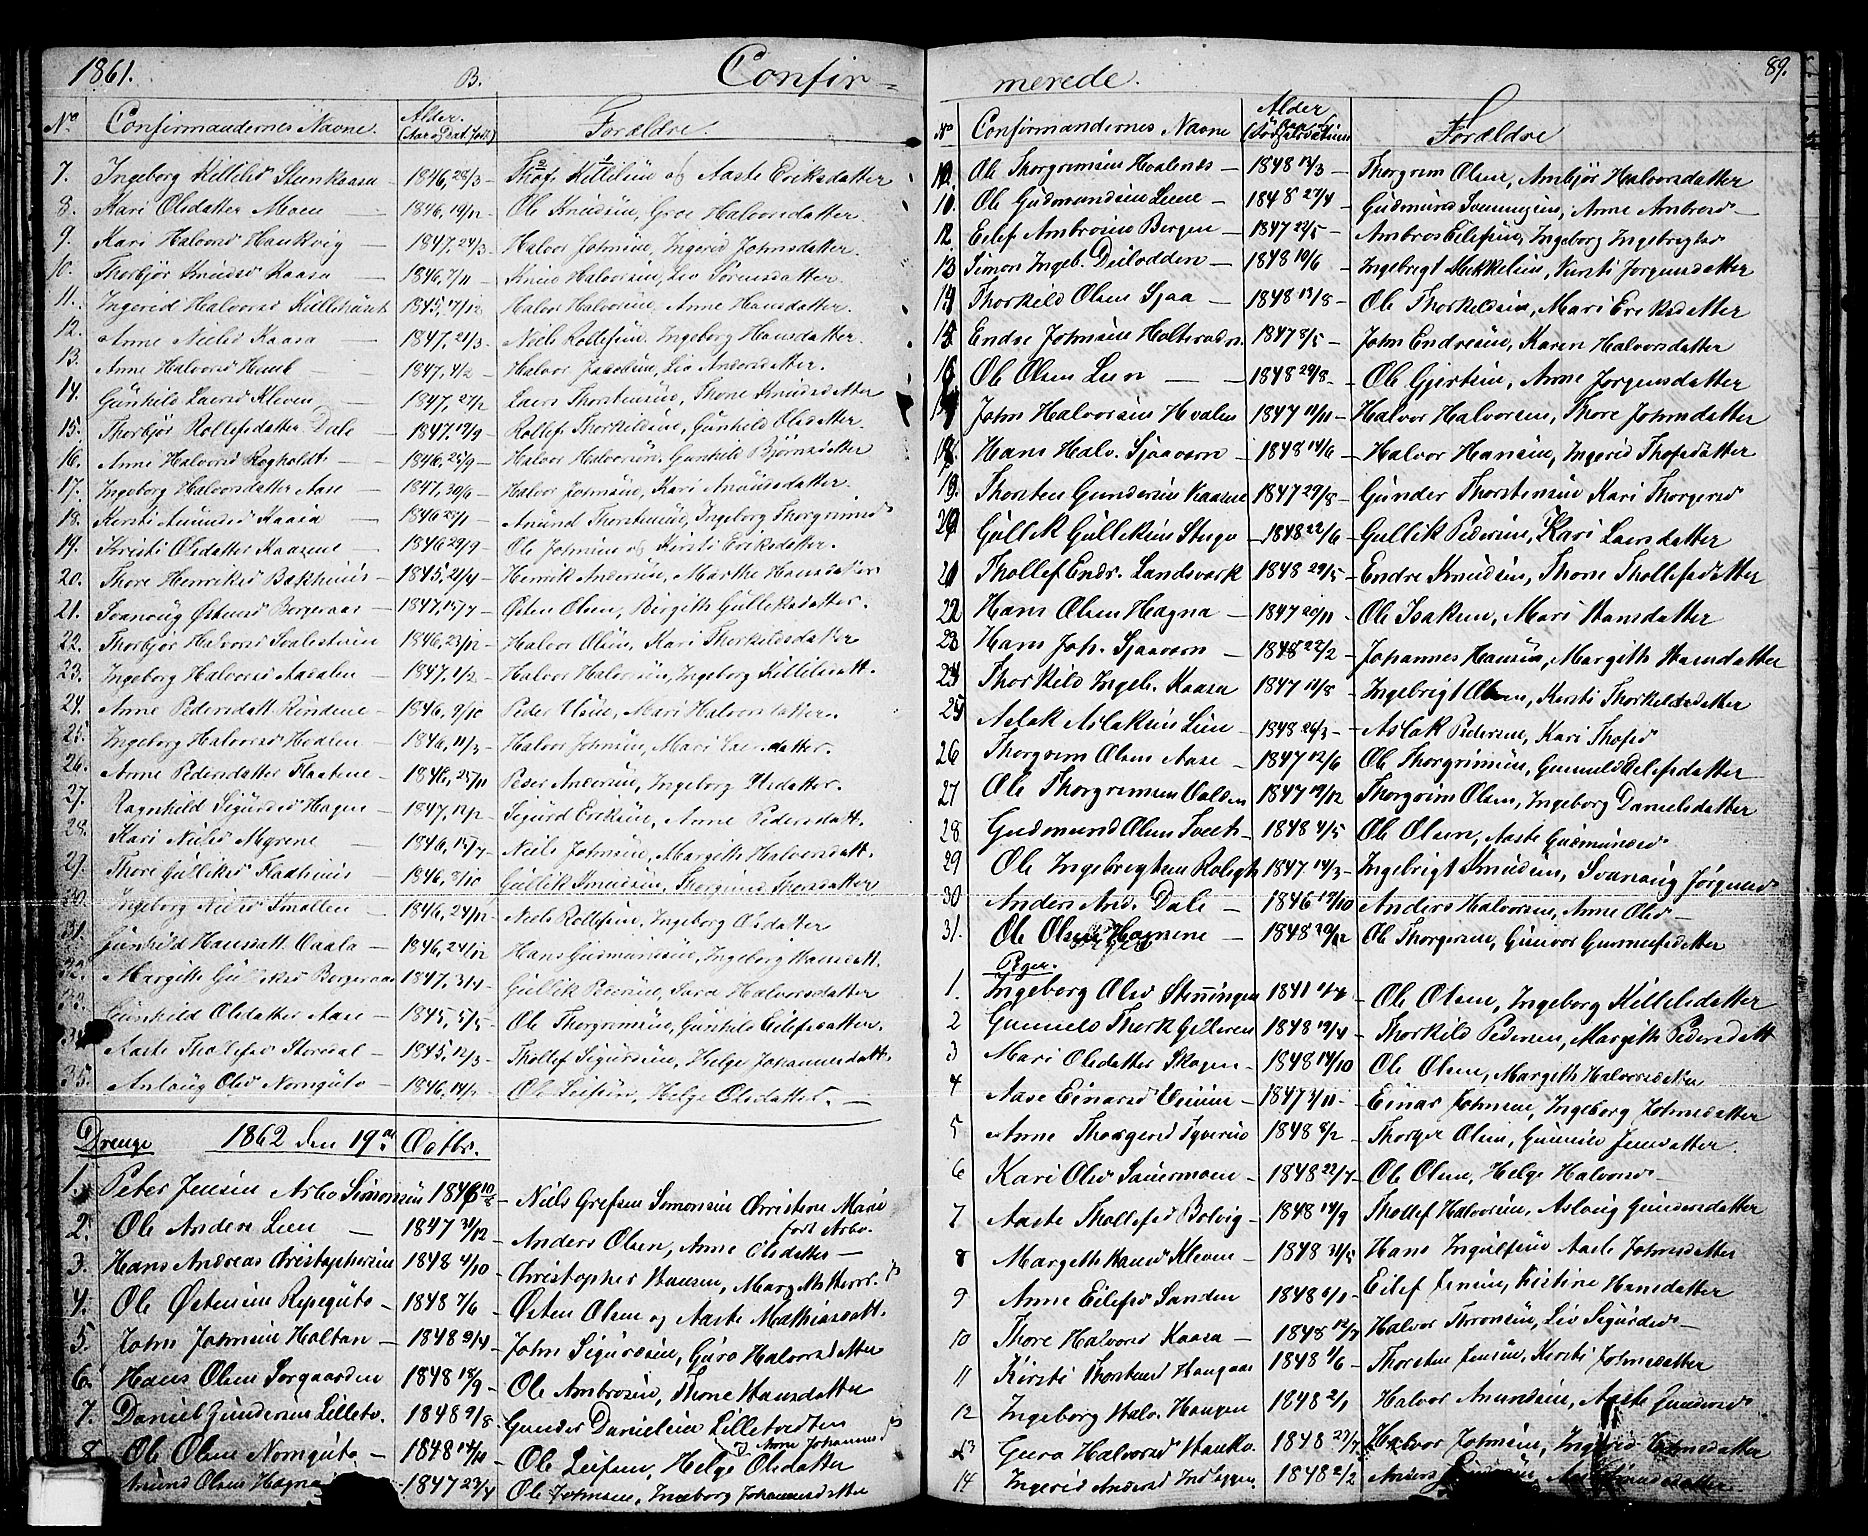 1861. B. Confir-
No. Confirmandernes Navne. Alder. (Aar & Dat. født) Forældre.
7. Ingeborg Killilsd Steenkaasa 1846, 28/3 Thof Killilsen og Aaste Eriksdatter
8. Kari Olsdatter Moen 1846, 19/12 Ole Knudsen, Groe Halvorsdatter.
9. Kari Halvorsd Haukvig 1847, 24/3 Halvor Johnsen, Ingerid Johnsdatter.
10. Thorbjør Knudsd Kaasa 1846, 7/11 Knud Halvorsen, Liv Sørensdatter.
11. Ingerid Halvorsd 1845, 17/12 Halvor Halvorsen, Anne Hansdatter.
12. Anne Nielsd Kaasa 1847, 21/3 Niels Rollefsen, Ingeborg Hansdatter.
13. Anne Halvorsd Hemb 1847, 4/2 Halvor Jacobsen, Liv Andersdatter.
14. Gunhild Laersd Kleven 1847, 27/2 Laers Thorstensen, Thone Knudsdatter
15. Thorbjør Rollefsdatter Dale 1847, 19/9 Rollef Thorkildsen, Gunhild Olsdatter.
16. Anne Halvorsd Rogholdt 1846, 25/9 Halvor Halvorsen, Gunhild Bjørnsdatter
17. Ingeborg Halvorsdatter Aase 1847, 30/6 Halvor Johnsen, Kari Anundsdatter.
18. Kersti Anundsd Kaasa 1846 Anund Thorstensen, Ingeborg Thorgrimsd
19. Kristi Olsdatter Kaasene 1846 29/9 Ole Johnsen og Kirsti Eriksdatter.
20. Thore Henriksd Bakhuus 1845, 21/4 Henrik Andersen, Marthe Hansdatter
21. Svanoug Østensd Borgeraas 1847, 15/7 Østen Olsen, Birgith Gulliksdatter.
22. Thorbjør Halvorsd 1846, 23/12 Halvor Olsen, Kari Thorkildsdatter
23. Ingeborg Halvorsd Aadalen 1847, 1/2 Halvor Halvorsen, Ingeborg Killilsdatt.
24. Anne Pedersdatt Rindene 1846, 9/10 Peder Olsen, Mari Halvorsdatter.
25. Ingeborg Halvorsd Hvalen 1846, 11/3 Halvor Johnsen, Mari datter.
26. Anne Pedersdatter Flaatene 1846, 25/11 Peder Andersen, Ingeborg Olsdatter.
27. Ragnhild Sigurdsd Hagen 1847, 12/2 Sigurd Eriksen, Anne Pedersdatt.
28. Kari Nielsd Myrene 1846, 15/7 Niels Johnsen, Margith Halvorsdatt.
29. Thore Gulliksd Fladhuus 1846, 8/10 Gullik Knudsen, Thorgund Thorsdatter
30. Ingeborg Nielsd Smallen 1846, 24/12 Niels Rollefsen, Ingeborg Olsdatter
31. Gunhild Hansdatt. 1846, 24/12 Hans Gudmundsen, Ingeborg Hansdatt.
32. Margith Gulliksd Borgeraas 1847, 31/4 Gullik Pedersen, Sara Halvorsdatter
33. Gunhild Olsdatter Aase 1845, 5/5 Ole Thorgrimsen, Gunhild Eilefsdatter.
34. Aaste Thollefsd Stordal 1845, 12/3 Thollef Sigursen, Helge Johannesdatt.
35. Anlaug Olsd Nornguto 1846, 14/2 Ole Leifsen, Helge Olsdatter.
Drenge 1862 den 19de Octbr.
1. Peter Jensen Arbo Simonsen 1846 Niels Grefsen Simonsen Christine Marie født Arbo.
2. Ole Anders Lien 1847 31/12 Anders Olsen, Anne Olsdatter
3. Hans Andreas Christophersen 1848 4/10 Christopher Hansen, Margith
4. Ole Østensen Ripeguto 1848 7/6 Østen Olsen og Aaste Mathiasdatt.
5. John Johnsen Holtan 1848 9/4 John Sigurdsen, Guro Halvorsdatter
6. Hans Olsen Sorgaarden 1848 18/9 Ole Ambrosen, Thone Hansdatter
7. Daniel Gundersen Lilletv. 1848 9/8 Gunder Danielsen Lilletvedten og Anne Johannesd
8. Ole Olsen Nornguto 1848 14/11 Ole Leifsen, Helge Olsdatter
Anund Olsen Hagna 1847 23/4 Ole Johnsen, Ingeborg Johannesdatter
merede. 89.
No Confirmandernes Navne Alder Forældre
10. Ole Thorgrimsen Hvalenes 1848 13/3 Thorgrim Olsen, Ambjør Halvorsdatter
11. Ole Gudmundsen Lene 1848 27/4 Gudmund Svenungsen, Anne Ambrosd
12 Eilef Ambrosen Bergen 1847 22/5 Ambros Eilefsen, Ingeborg Ingebregtsd
13 Simon Ingeb. Deilodden 1848 19/6 Ingebrigt Mekkelsen, Kirsti Jørgensdatter
14 Thorkild Olsen Sjaa 1848 13/8 Ole Thorkildsen, Mari Eriksdatter
15 Endre Johnsen 1847 8/5 John Endresen, Karen Halvorsdatter
16 Ole Olsen Lien 1848 29/8 Ole Gjertsen, Anne Jørgensdatter
17 John Halvorsen Hvalen 1847 11/11 Halvor Halvorsen, Thore Johnsdatter
18. Hans Halv. Sjaavorn 1848 14/6 Halvor Hansen, Ingerid Thofsdatter
19. Thorsten Gundersen Kaasene 1847 29/8 Gunder Thorstensen Kari Thorgersd
20 Gullik Gulliksen Stugo 1848 22/6 Gullik Pedersen, Kari Laersdatter
21 Thollef Endr. Landsverk 1848 29/5 Endre Knudsen, Thone Thollefsdatter
22 Hans Olsen Hagna 1847 20/11 Ole Isaksen, Mari Hansdatter
23 Hans Joh. Sjaavorn 1848 22/2 Johannes Hansen, Margith Hansdatter
24 Thorkild Ingeb. Kaasa 1847 11/8 Ingebrigt Olsen, Kersti Thorkildsdatter
25 Aslak Aslaksen Lien 1848 26/3 Aslak Pedersen, Kari Thofsd
26 Thorgrim Olsen Aase 1847 12/6 Ole Thorgrimsen, Gunnild Eilefsdatter
27 Ole Thorgrimsen 1847 19/12 Thorgrim Olsen, Ingeborg Danielsdatter
28 Gudmund Olsen Tveit 1848 4/5 Ole Olsen, Aaste Gudmundsd
29 Ole Ingebregtsen Roligh 1847 14/3 Ingebrigt Knudsen, Svanaug Jørgensd
30 Anders And. Dale 1846 19/10 Anders Halvorsen, Anne Olsd
31. Ole Olsen Hagnene 1848 20/12 Ole Thorgersen, Gunvor Gunnufsdatter
Piger.
1. Ingeborg Olsd Stenningen Ole Olsen, Ingeborg Killilsdatter
2 Gunnild Thork Gilleren 1848 19/4 Thorkild Pedersen, Margith Pedersdatt
3 Mari Olsdatter Skogen 1848 14/10 Ole Olsen, Margith Halvorsdatter
4 Aase Einarsd 1847 3/11 Einar Johnsen, Ingeborg Johnsdatter
5 Anne Thorgersd 1848 8/2 Thorger Olsen, Gunnild Jensdatter.
6 Kari Olsd Sauermoen 1848 22/7 Ole Olsen, Helge Halvorsd
7 Aaste Thollefsd Bolvig 1848 14/9 Thollef Halvorsen, Aslaug Gundersdatter
8 Margith Hansd Kleven 1848 31/5 Hans Ingulfsen Aaste Johnsdatter
9 Anne Eilefsd Sanden 1848 6/1 Eilef Jensen, Kirstine Hansdatter
10 Thore Halvorsd Kaasa 1848 12/7 Halvor Aronsen, Liv Sigurdsd
11 Kirsti Thorstensd Haugaas 1848 1/6 Thorsten Jensen, Kersti Johnsdatter
12 Ingeborg Halv. Haugen 1848 2/1 Halvor Anundsen, Aaste Gundersd
13 Guro Halvorsd Haukv. 1848 27/7 Halvor Johnsen, Ingerid Johnsdatter
14 Ingerid Andersd 1848 2/2 Anders